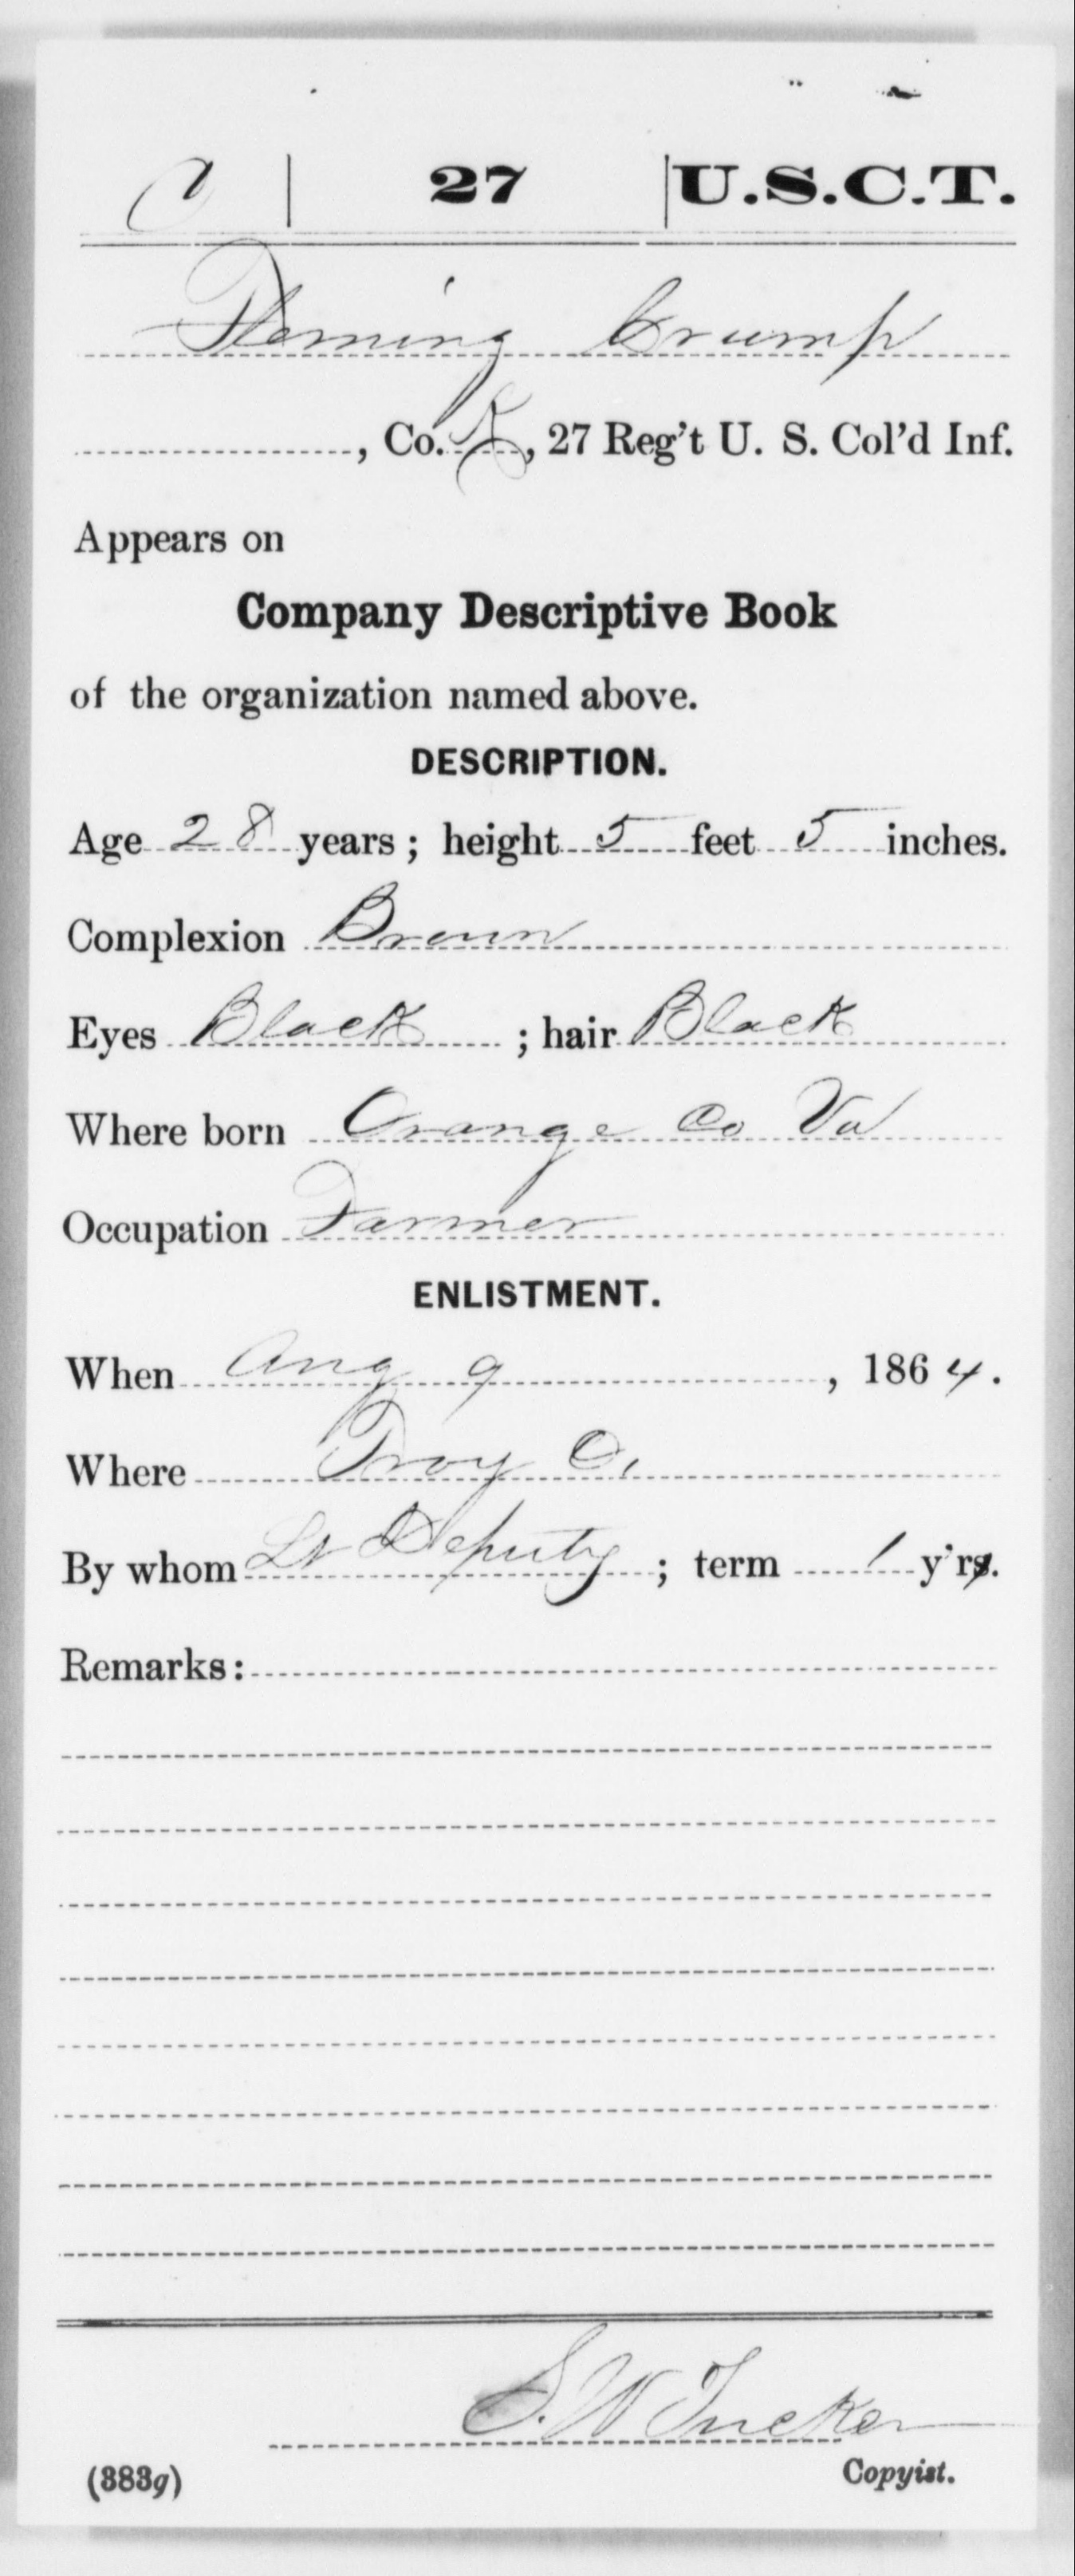 C | 27 | U.S.C.T.
Fleming Crump
, Co. K, 27 Reg't U. S. Col'd Inf.
Appears on
Company Descriptive Book
of the organization named above.
DESCRIPTION.
Age 28 years; height 5 feet 5 inches.
Complexion Brown
Eyes Black ; hair Black
Where born Orange Co Va
Occupation Farmer
ENLISTMENT.
When Aug 9, 1864.
Where Troy O.
By whom Lt Deputy ; term 1 y'rs.
Remarks:
S. W. Tucker
(383g) Copyist.